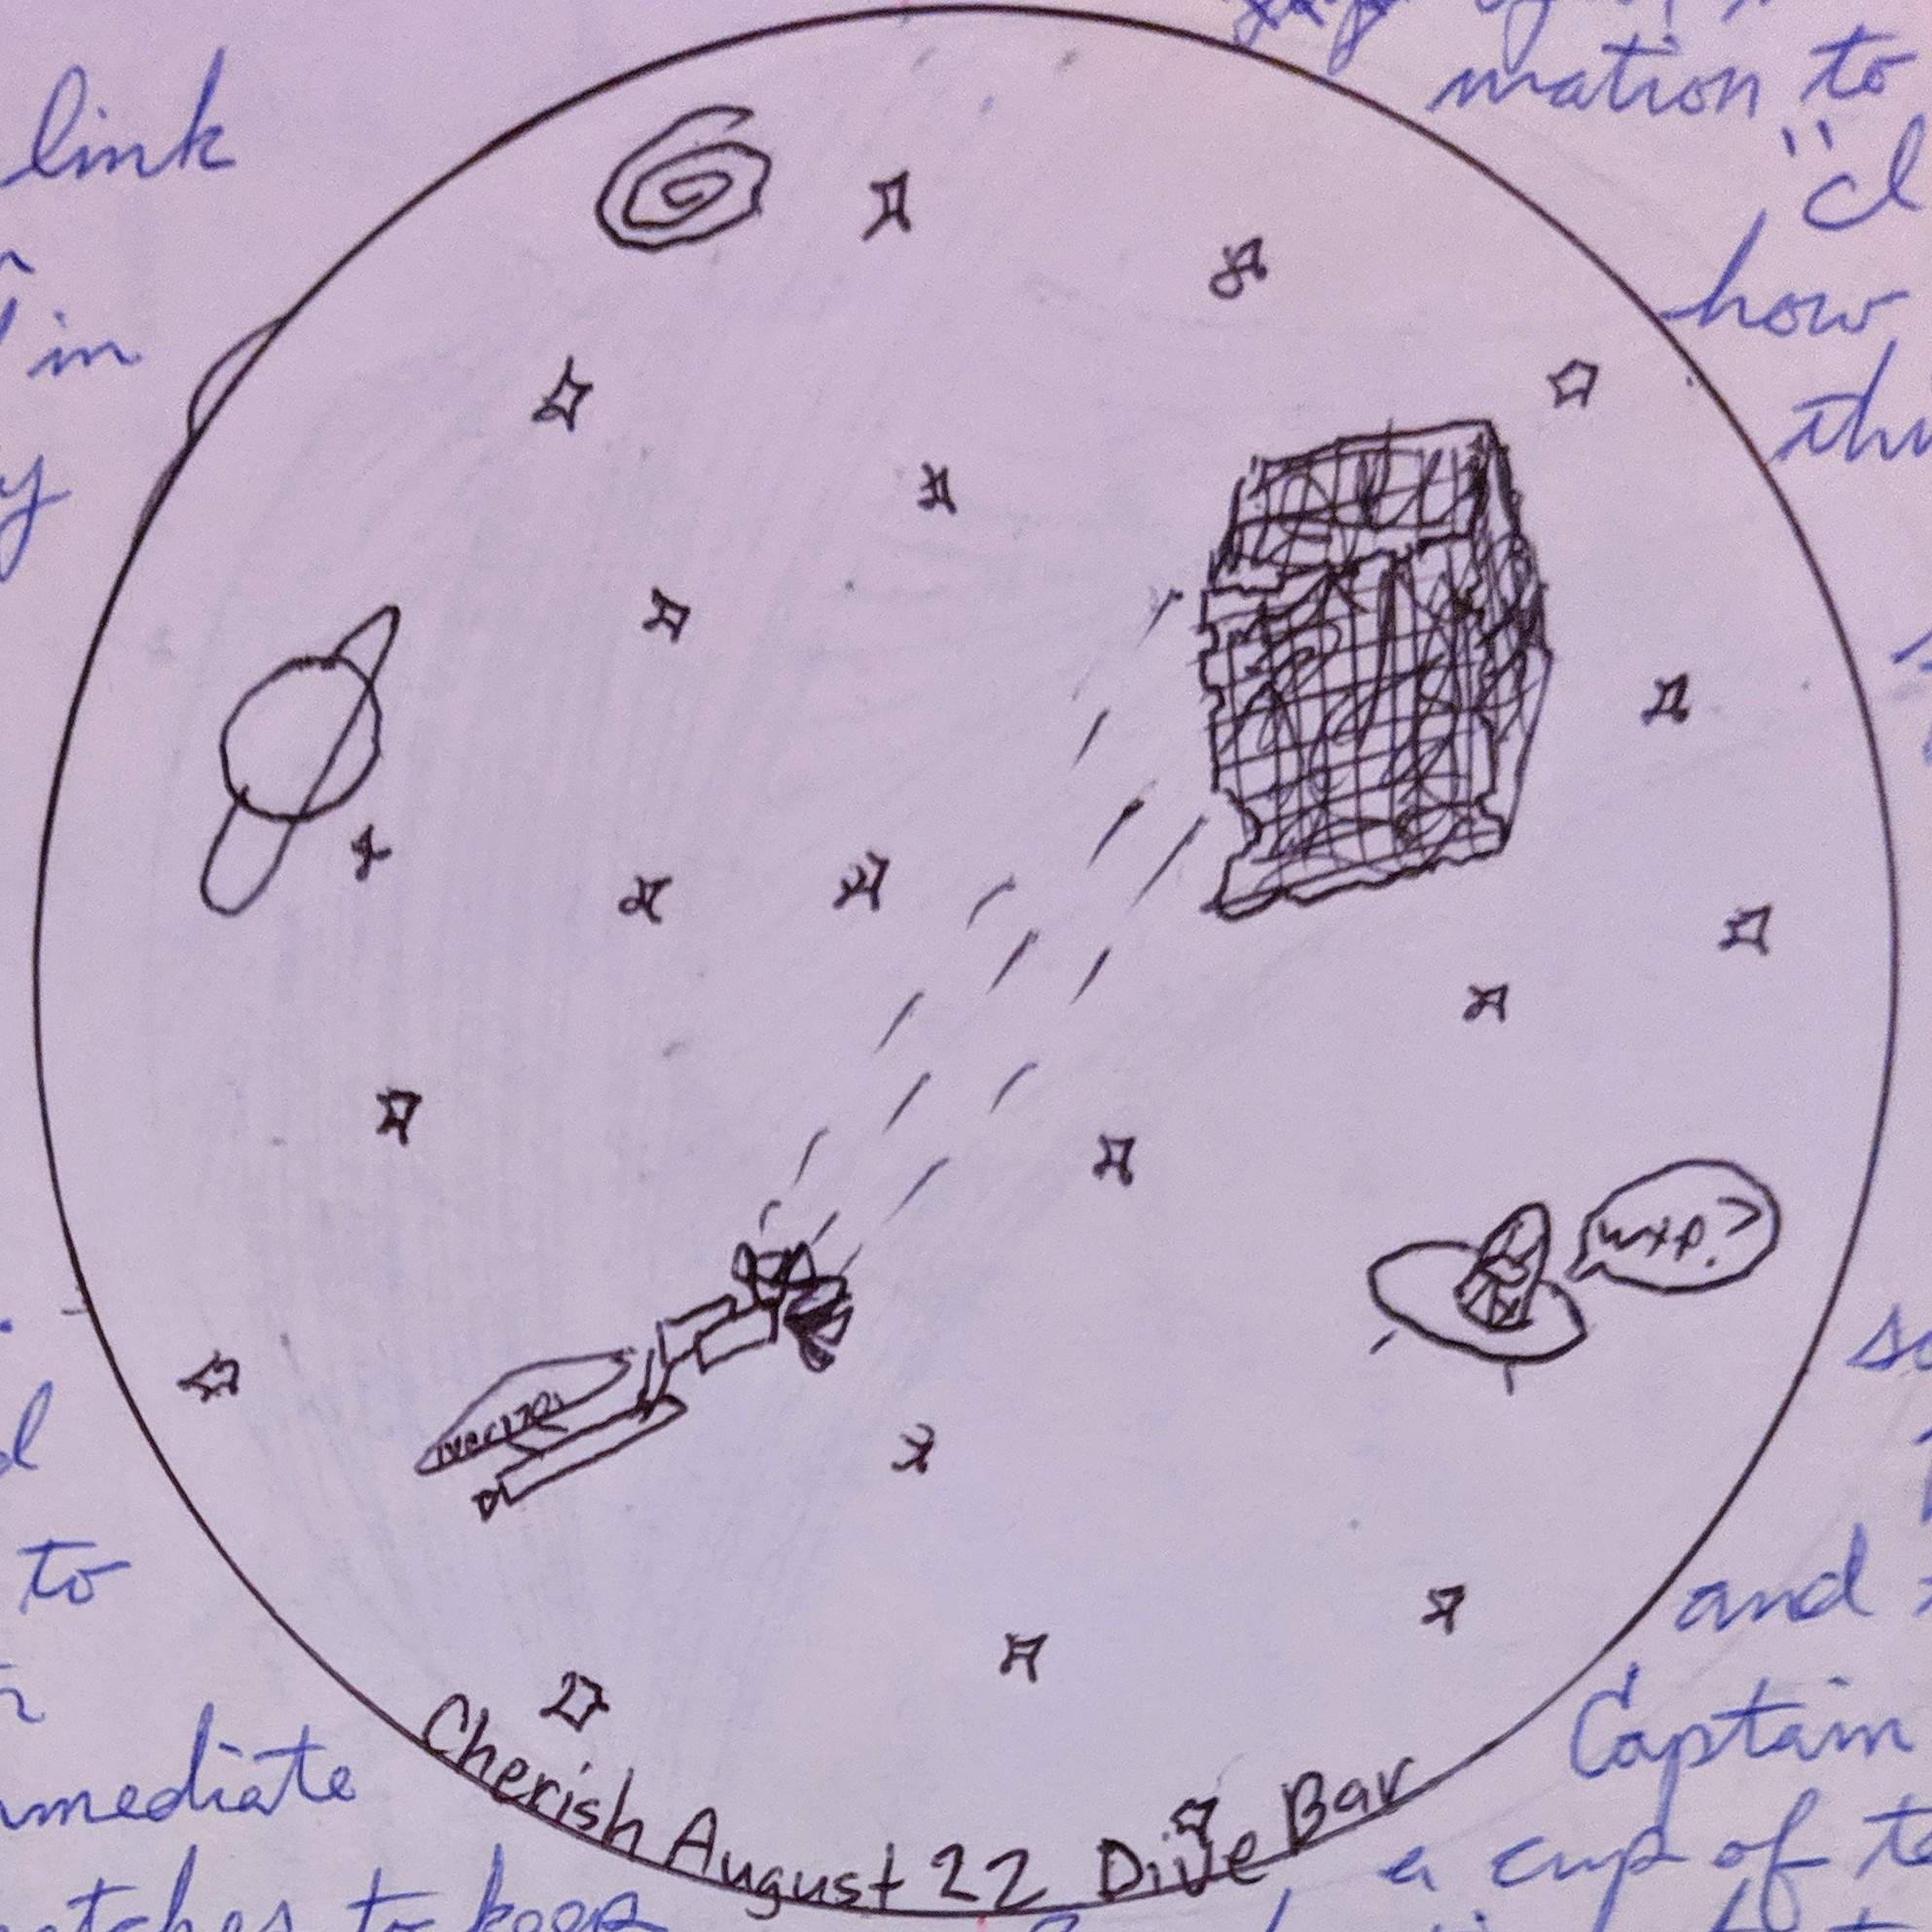 mation to
link
"cl
how
in
y
wxp?
so
d
and
to
Captain
mmediate
Cherish August 22 Dive Bar
a cup of
to keep